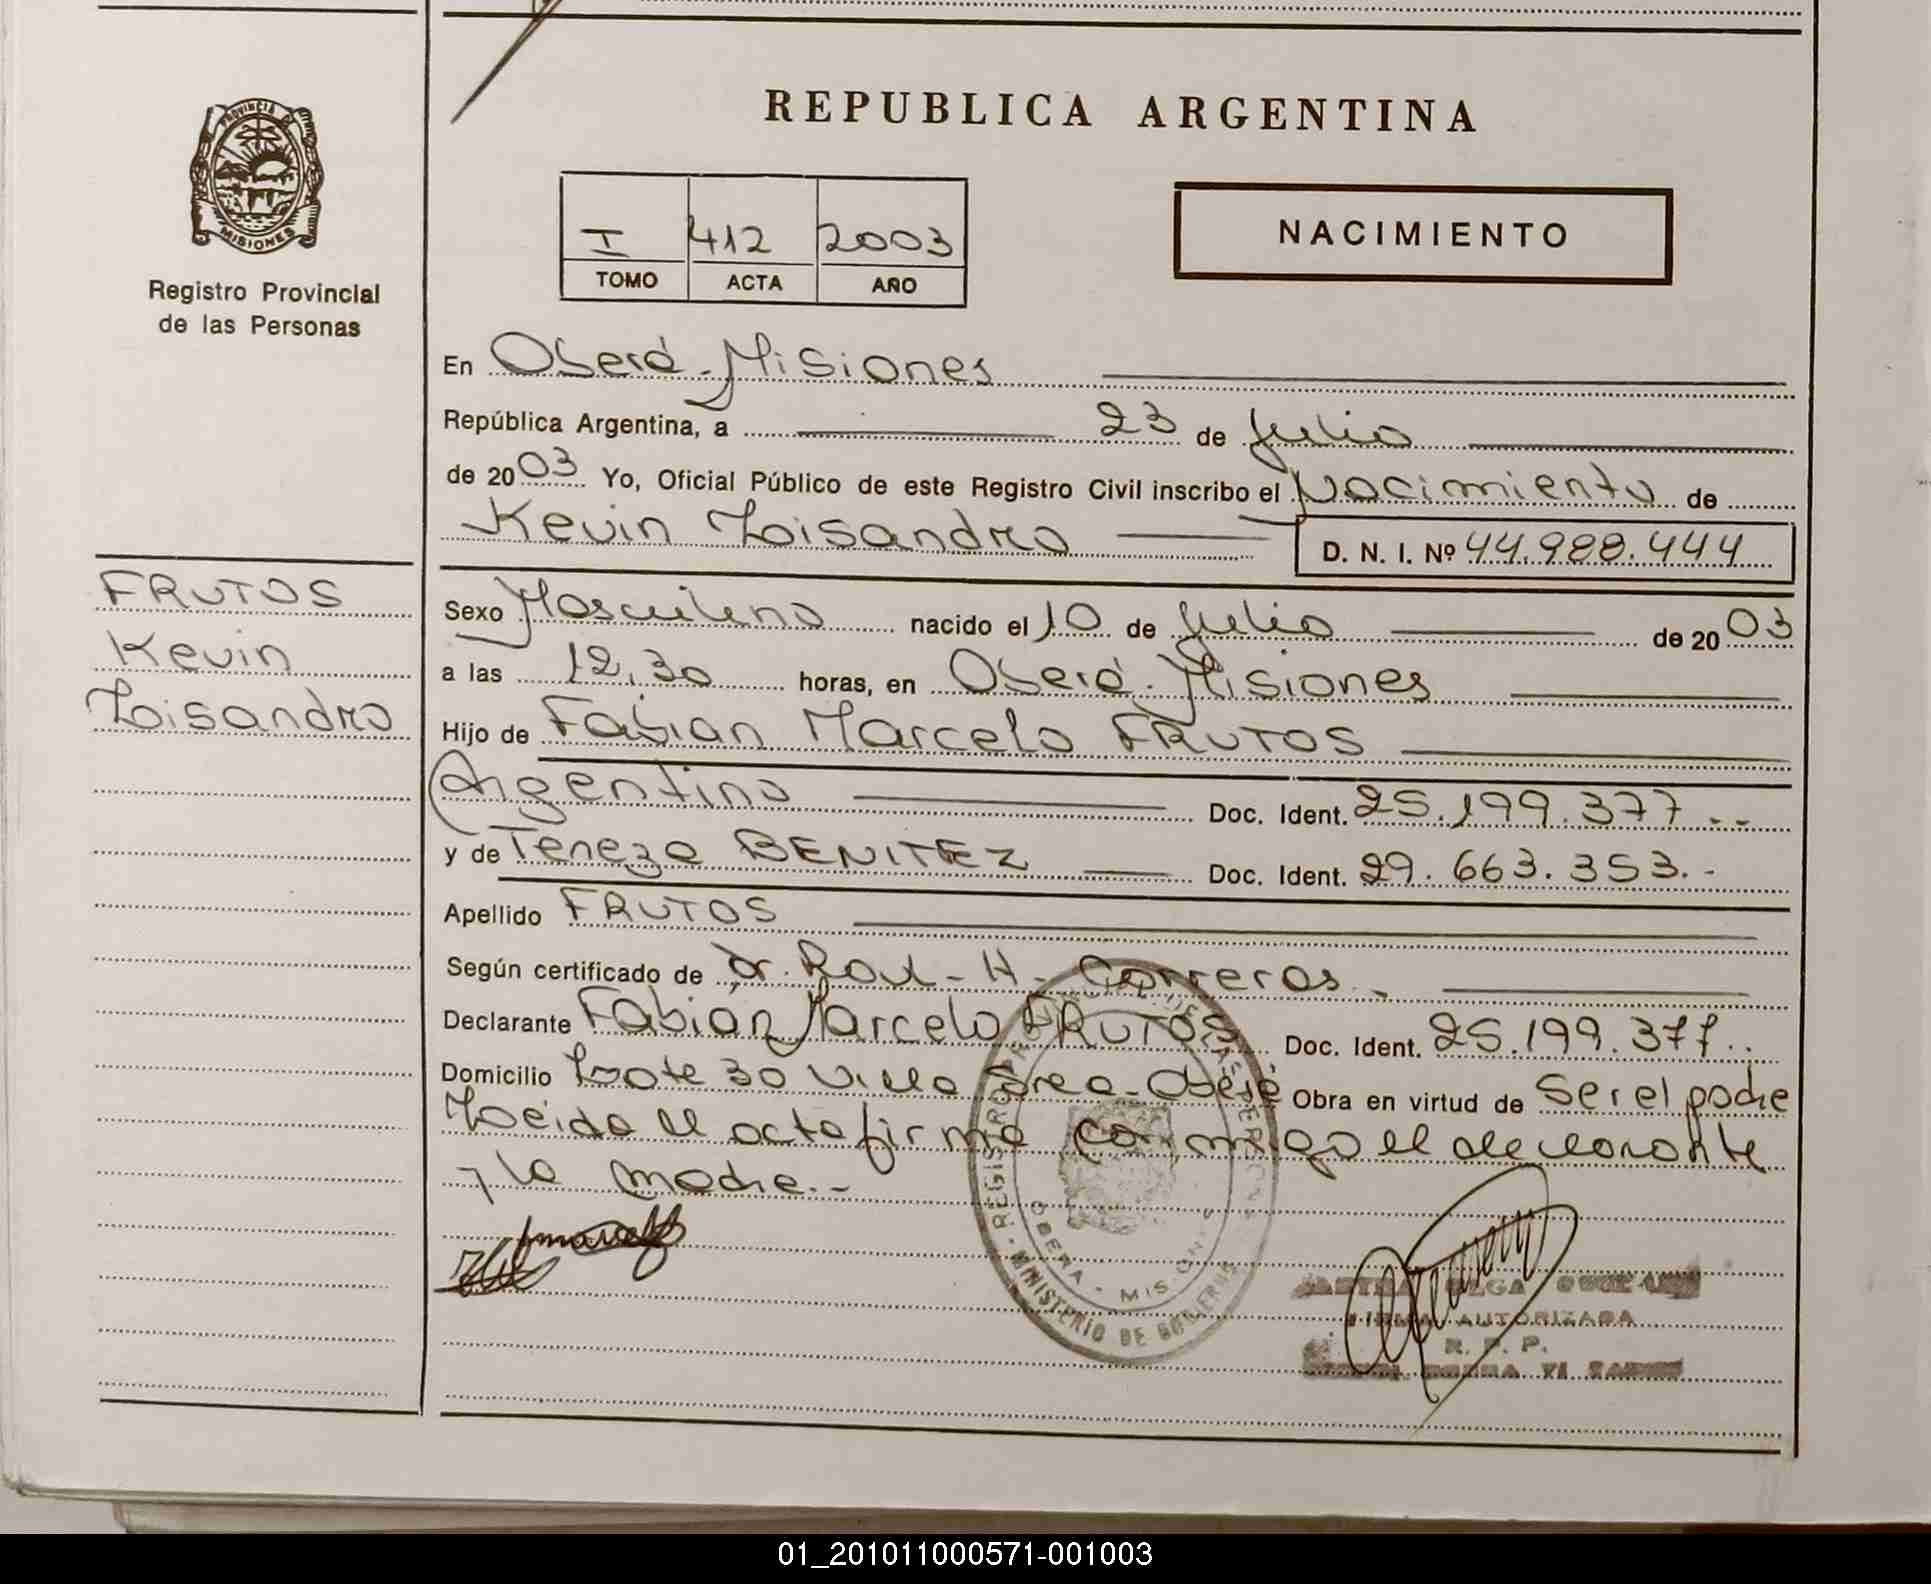 REPUBLICA ARGENTINA
PROVINCIA DE
MISIONES
Registro Provincial
de las Personas
I 412 2003
TOMO ACTA AÑO
NACIMIENTO
En Oberá - Misiones
República Argentina, a 23 de Julio
de 2003 Yo, Oficial Público de este Registro Civil inscribo el Nacimiento de
Kevin Loisandro D. N. I. Nº 44.988.444
FRUTOS
Kevin
Loisandro
Sexo Masculino nacido el 10 de Julio de 2003
a las 12,30 horas, en Oberá - Misiones
Hijo de Fabian Marcelo FRUTOS
Argentino Doc. Ident. 25.199.377 --
y de Tereza BENITEZ Doc. Ident. 29.663.353.-
Apellido FRUTOS
Según certificado de Dr. Raul - H - Carreras -
Declarante Fabián Marcelo FRUTOS Doc. Ident. 25.199.377..
Domicilio Lote 30 Villa Oberá Obra en virtud de ser el padre
Leida el acta firma conmigo el declarante
y la madre.-
REGISTRO
OBERA - MISIONES
MINISTERIO DE GOBIERNO
OLGA
FIRMA AUTORIZADA
R. P. P.
01_201011000571-001003